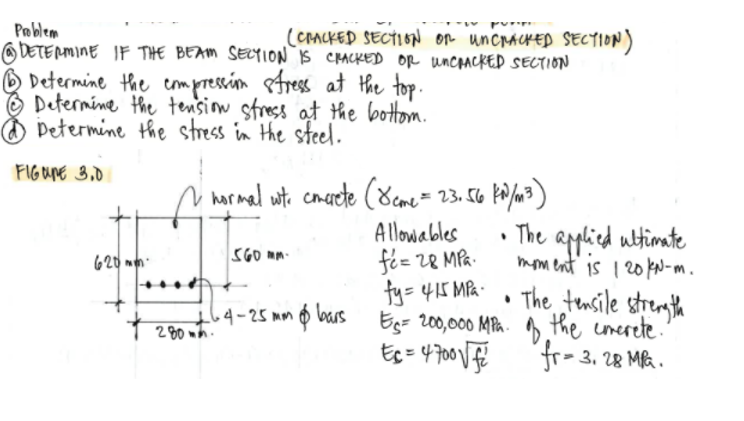 Problem
(CRACKED SECTION OR UNCRACKED SECTION)
ⓐ DETERMINE IF THE BEAM SECTION IS CRACKED OR UNCRACKED SECTION
ⓑ Determine the compression stress at the top.
ⓒ Determine the tension stress at the bottom.
ⓓ Determine the stress in the steel.
FIGURE 3.0
normal wt. concrete (γconc = 23.56 kN/m³)
620 mm.
560 mm.
4-25 mm ϕ bars
280 mm.
Allowables
f'c = 28 MPa.
fy = 415 MPa.
Es = 200,000 MPa.
Ec = 4700√f'c
• The applied ultimate
moment is 120 kN-m.
• The tensile strength
of the concrete.
fr = 3.28 MPa.